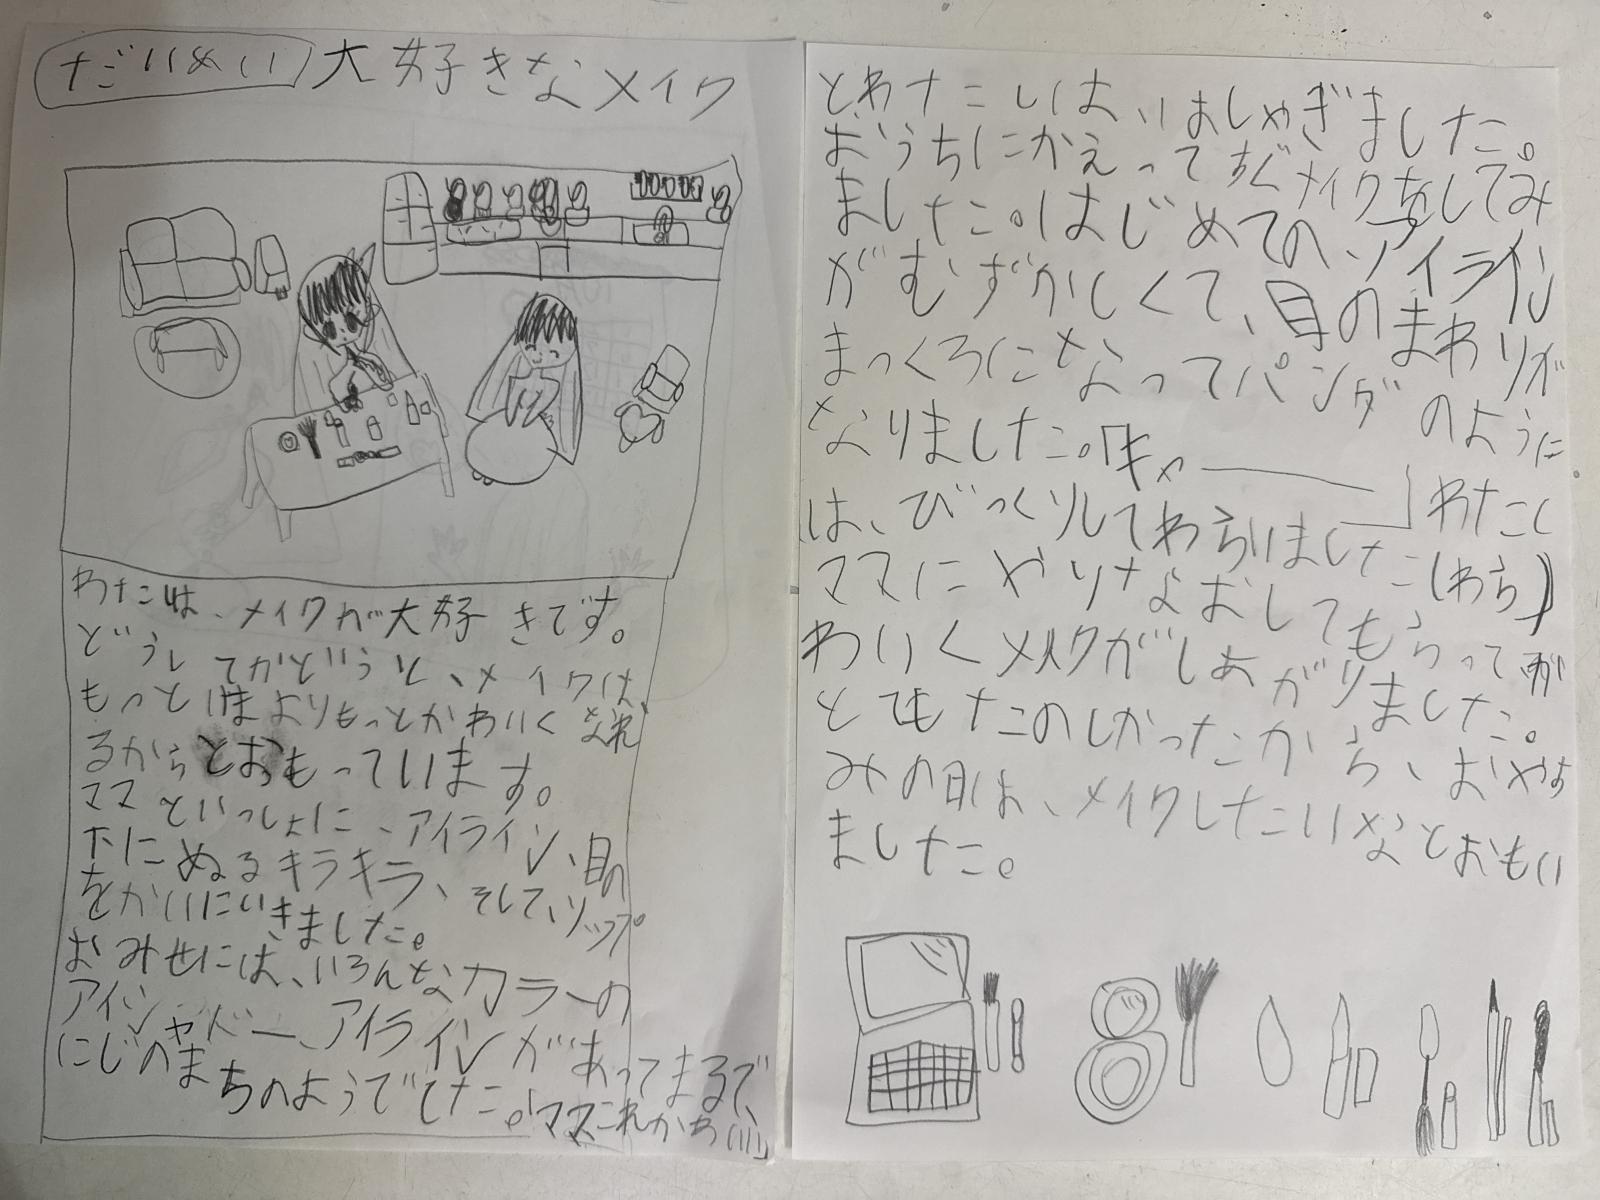 だいめい 大好きなメイク
わたしは、メイクが大好きです。
どうしてかというと、メイクは
もっといまよりもっとかわいくなれ
るからとおもっています。
ママといっしょに、アイライン、目の
下にぬるキラキラ、そして、リップ
をかいにいきました。
おみせには、いろんなカラーの
アイシャドー、アイラインがあってまるで、
にじのまちのようでした。「ママこれかわいい」
とわたしは、はしゃぎました。
おうちにかえってすぐメイクをしてみ
ました。はじめてのアイライン
がむずかしくて、目のまわりが
まっくろになってパンダのように
なりました。「キャー」わたし
は、びっくりしてわらいました(わら)
ママにやりなおしてもらって か
わいくメイクがしあがりました。
とてもたのしかったから、おやす
みの日は、メイクしたいなとおもい
ました。